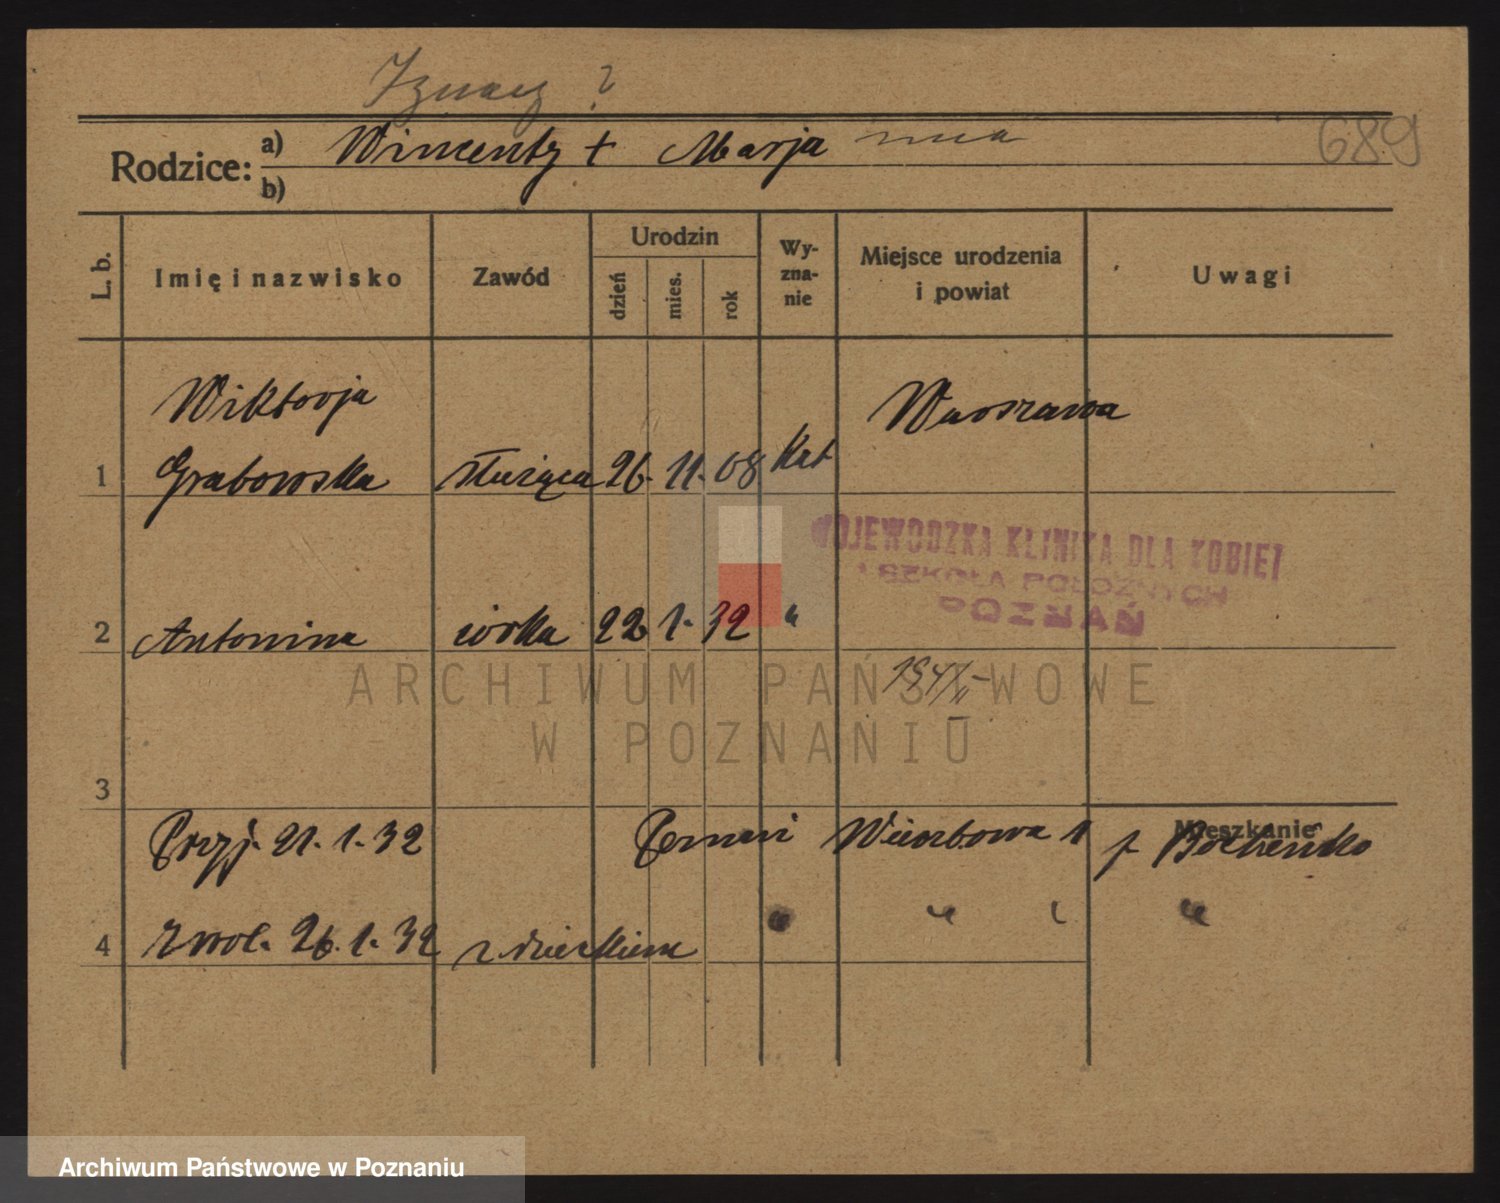 Ignacy ?
Rodzice: a) Wincenty + Marja
b)
689
L. b.
Imię i nazwisko
Zawód
Urodzin
dzień mies. rok
Wy-
zna-
nie
Miejsce urodzenia
i powiat
Uwagi
Wiktorja Warszawa
1 Grabowska służąca 26. 11. 08 Kat
WOJEWÓDZKA KLINIKA DLA KOBIET
I SZKOŁA POŁOŻNYCH
POZNAŃ
2 Antonina córka 22 1. 32 "
ARCHIWUM PAŃSTWOWE
W POZNANIU
3
Mieszkanie
Przyj. 21. 1. 32 Poznań Wierzbowa
4 Zwol. 26. 1. 32 z dzieckiem " " " "
Archiwum Państwowe w Poznaniu